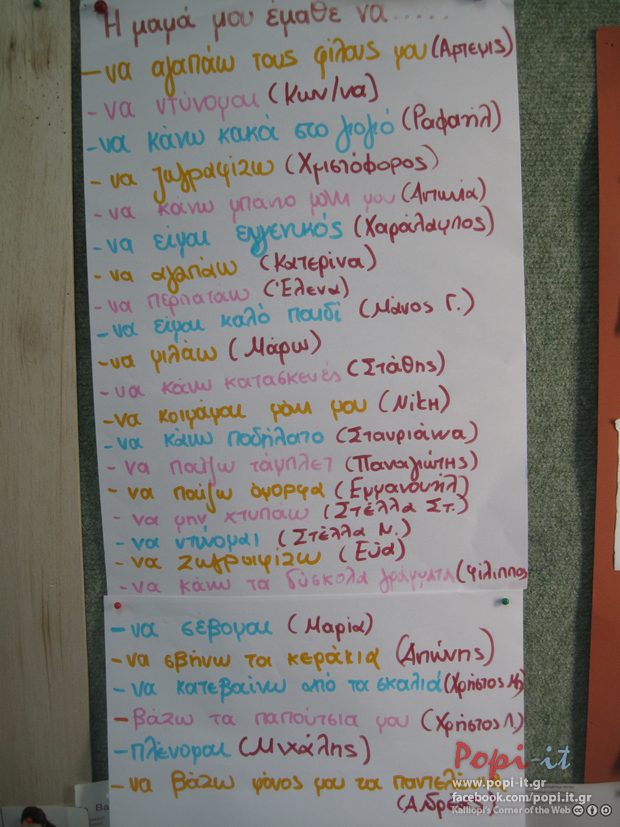 Η μαμά μου έμαθε να.....
-να αγαπάω τους φίλους μου (Άρτεμις)
-να ντύνομαι (Κων/να)
-να κάνω κακά στο γιογιό (Ραφαήλ)
-να ζωγραφίζω (Χριστόφορος)
-να κάνω μπάνιο μόνη μου (Αντωνία)
-να είμαι ευγενικός (Χαράλαμπος)
-να αγαπάω (Κατερίνα)
-να περπατάω (Έλενα)
-να είμαι καλό παιδί (Μάνος Γ.)
-να μιλάω (Μάρω)
-να κάνω κατασκευές (Στάθης)
-να κοιμάμαι μόνη μου (Νίκη)
-να κάνω ποδήλατο (Σταυριάννα)
-να παίζω τάμπλετ (Παναγιώτης)
-να παίζω όμορφα (Εμμανουήλ)
-να μην χτυπάω (Στέλλα Στ.)
-να ντύνομαι (Στέλλα Ν.)
-να ζωγραφίζω (Εύα)
-να κάνω τα δύσκολα γράμματα (Φίλιππος
-να σέβομαι (Μαρία)
-να σβήνω τα κεράκια (Αντώνης)
-να κατεβαίνω από τα σκαλιά (Χρήστος Μ)
-βάζω τα παπούτσια μου (Χρήστος Λ.)
-πλένομαι (Μιχάλης)
-να βάζω μόνος μου τα
Popi-it
www.popi-it.gr
facebook.com/popi.it.gr
Kalliopi's Corner of the Web